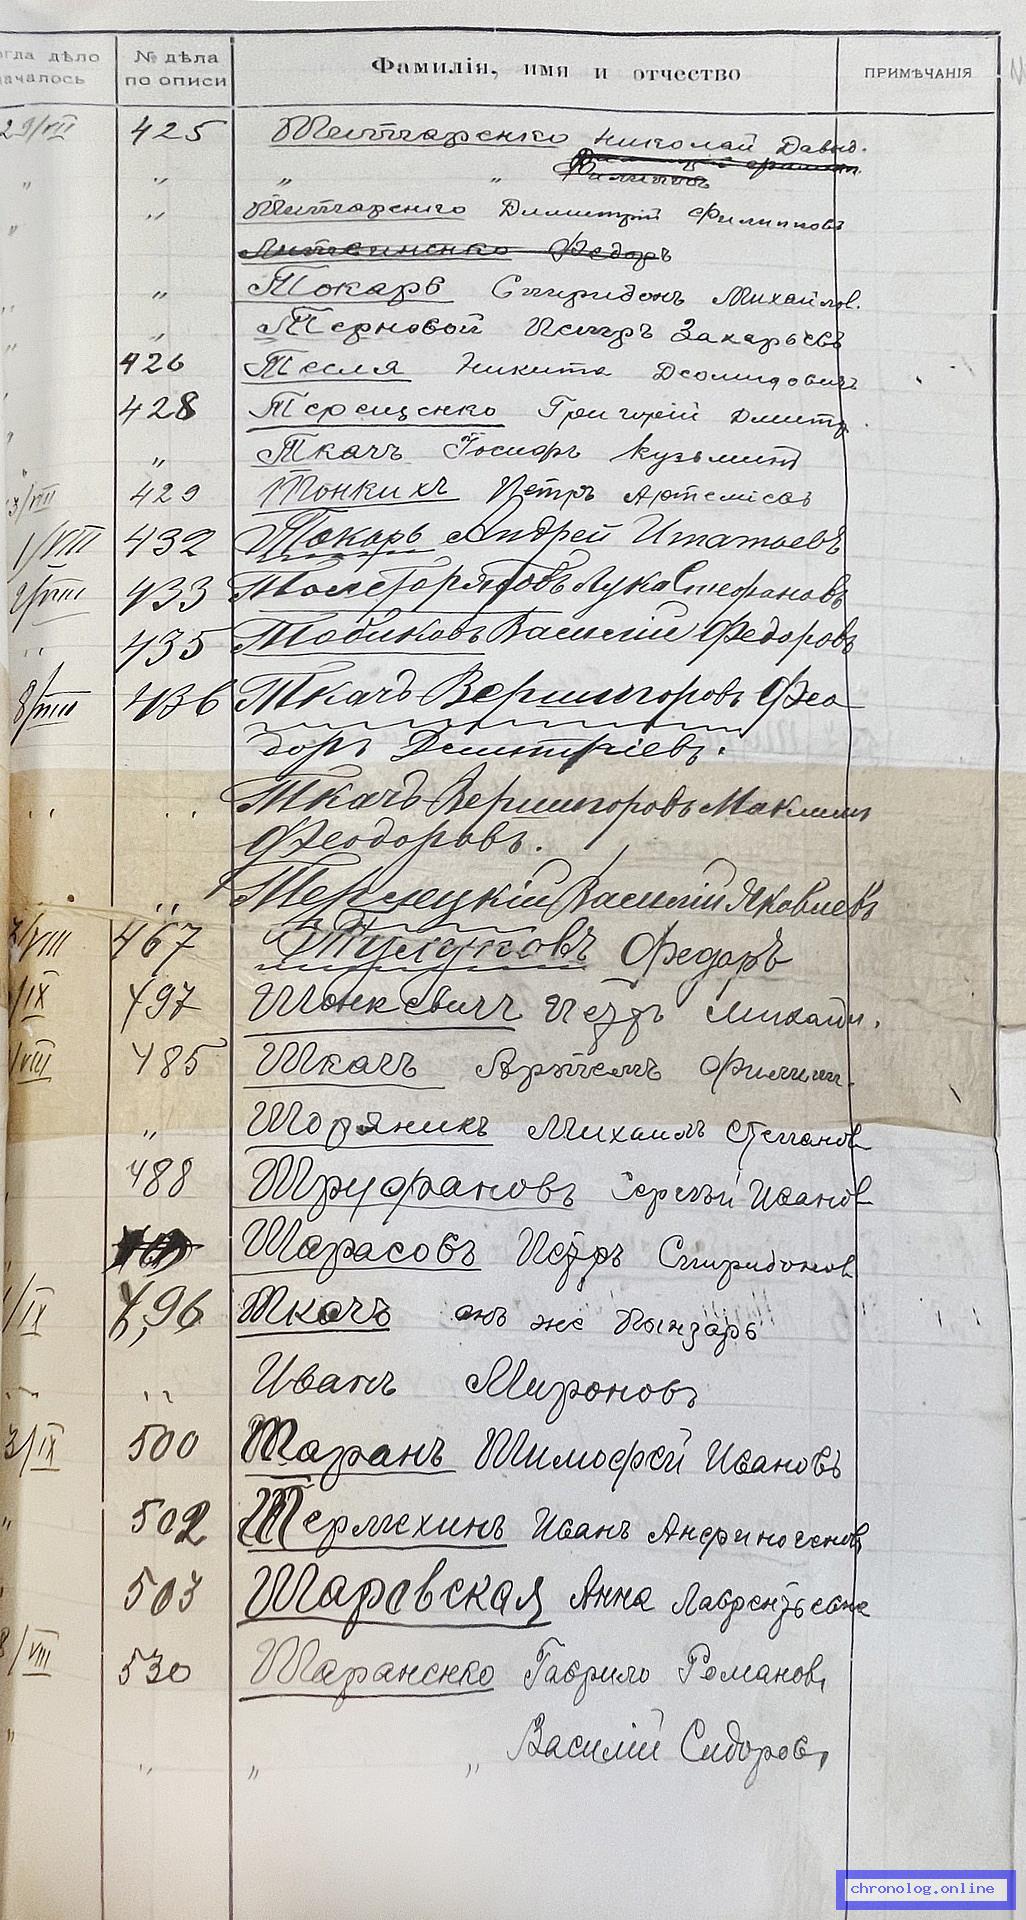 гда дѣло началось № дѣла по описи Фамилія, имя и отчество ПРИМѢЧАНІЯ
29/VII 425 Титаренко Николай Давид.
" " " "
" " Титаренко Димитрій Филиповъ
Литвиненко Федоръ
" " Токарь Спиридонъ Михайлов.
" " Терновой Петръ Захарьевъ
426 Тесля Никита Деомидович
428 Терещенко Григорій Дмитр.
" " Ткачъ Іосифъ Кузьмичъ
3/VIII 429 Тонкихъ Петръ Артемьевъ
1/VIII 432 Токарь Андрей Игнатьевъ
2/VIII 433 Лука Стефановъ
" 435 Товиковъ Василій Федоровъ
8/VIII 436 Ткачъ Вершигоровъ Фео
доръ Дмитріевъ.
" " Ткачъ Вершигоровъ Максимъ
Феодоровъ.
" " Терлецкій Василій Яковлевъ
/VIII 467 Тулуповъ Федоръ
/IX 497 Тонкевичъ Петръ Михайл.
/VIII 485 Ткачъ Артемъ Филип.
" Торяникъ Михаилъ Степанов
488 Труфановъ Сергѣй Иванов
" Тарасовъ Петръ Спиридонов
/IX 496 Ткачъ онъ же Пынзарь
" " Иванъ Мироновъ
3/IX 500 Таранъ Тимофей Ивановъ
" 502 Термехинъ Иванъ Анфиногенов
503 Таровская Анна Лаврентьевна
8/VIII 530 Тараненко Гаврило Романов,
" " " " Василій Сидоров,
chronolog.online